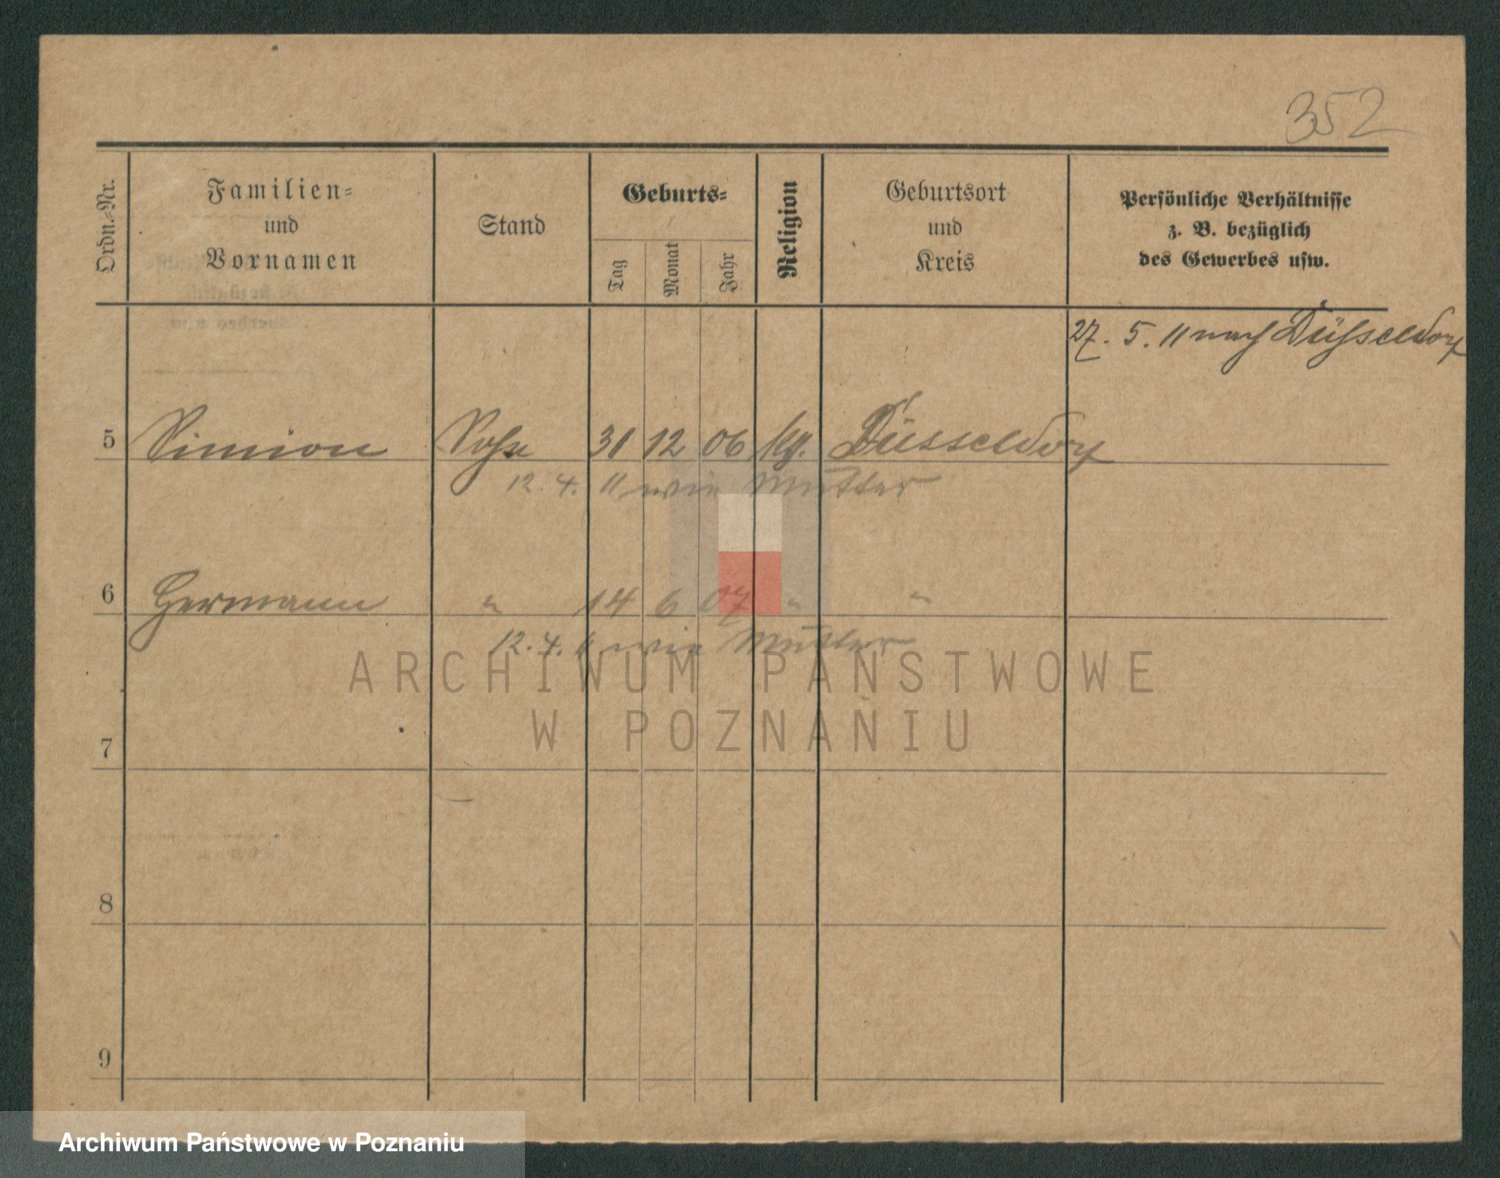 352
Ordn.-Nr.
Familien-
und
Vornamen
Stand
Geburts-
Tag
Monat
Jahr
Religion
Geburtsort
und
Kreis
Persönliche Verhältnisse
z. B. bezüglich
des Gewerbes usw.
27. 5. 11 nach Düsseldorf
5 Simion Sohn 31 12 06 kg. Düsseldorf
12. 4. 11 wie Mutter
6 Hermann " 14 6 07 " "
12. 4. 11 wie Mutter
ARCHIWUM PAŃSTWOWE
W POZNANIU
7
8
9
Archiwum Państwowe w Poznaniu